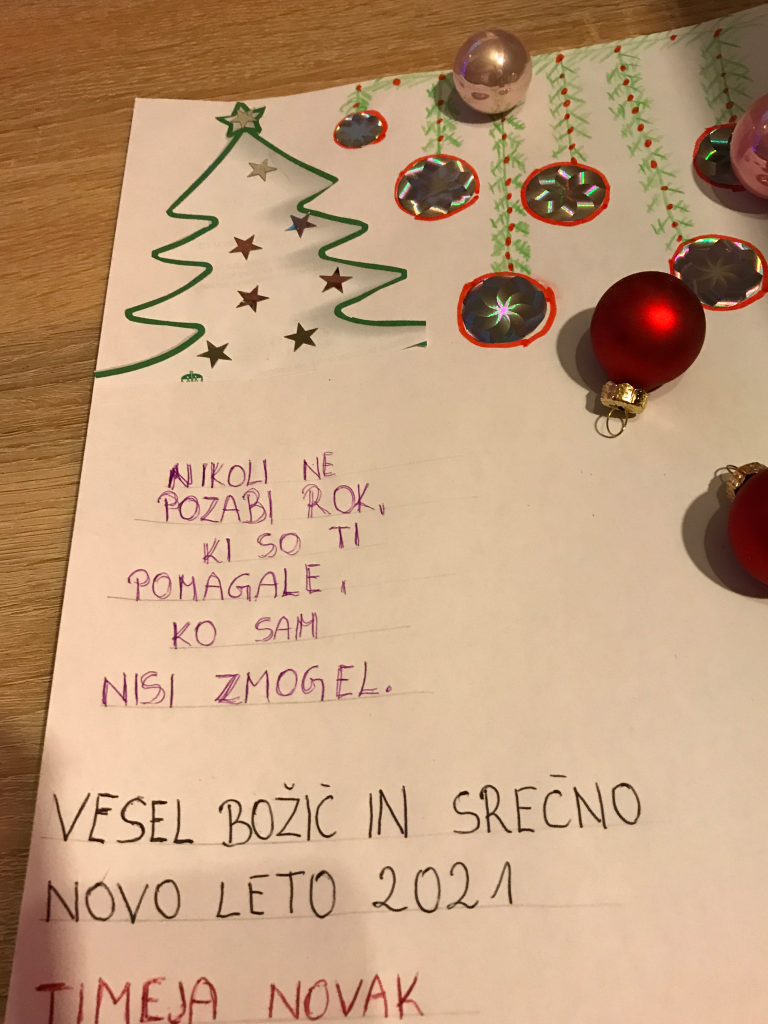 NIKOLI NE
POZABI ROK,
KI SO TI
POMAGALE,
KO SAM
NISI ZMOGEL.
VESEL BOŽIČ IN SREČNO
NOVO LETO 2021
TIMEJA NOVAK